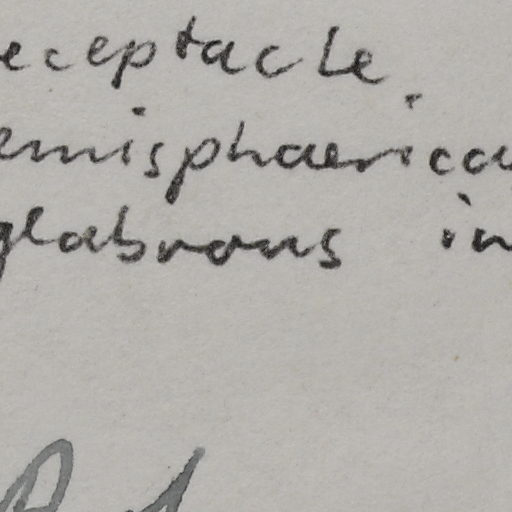 eceptacle
emisphaerica
glabrous in